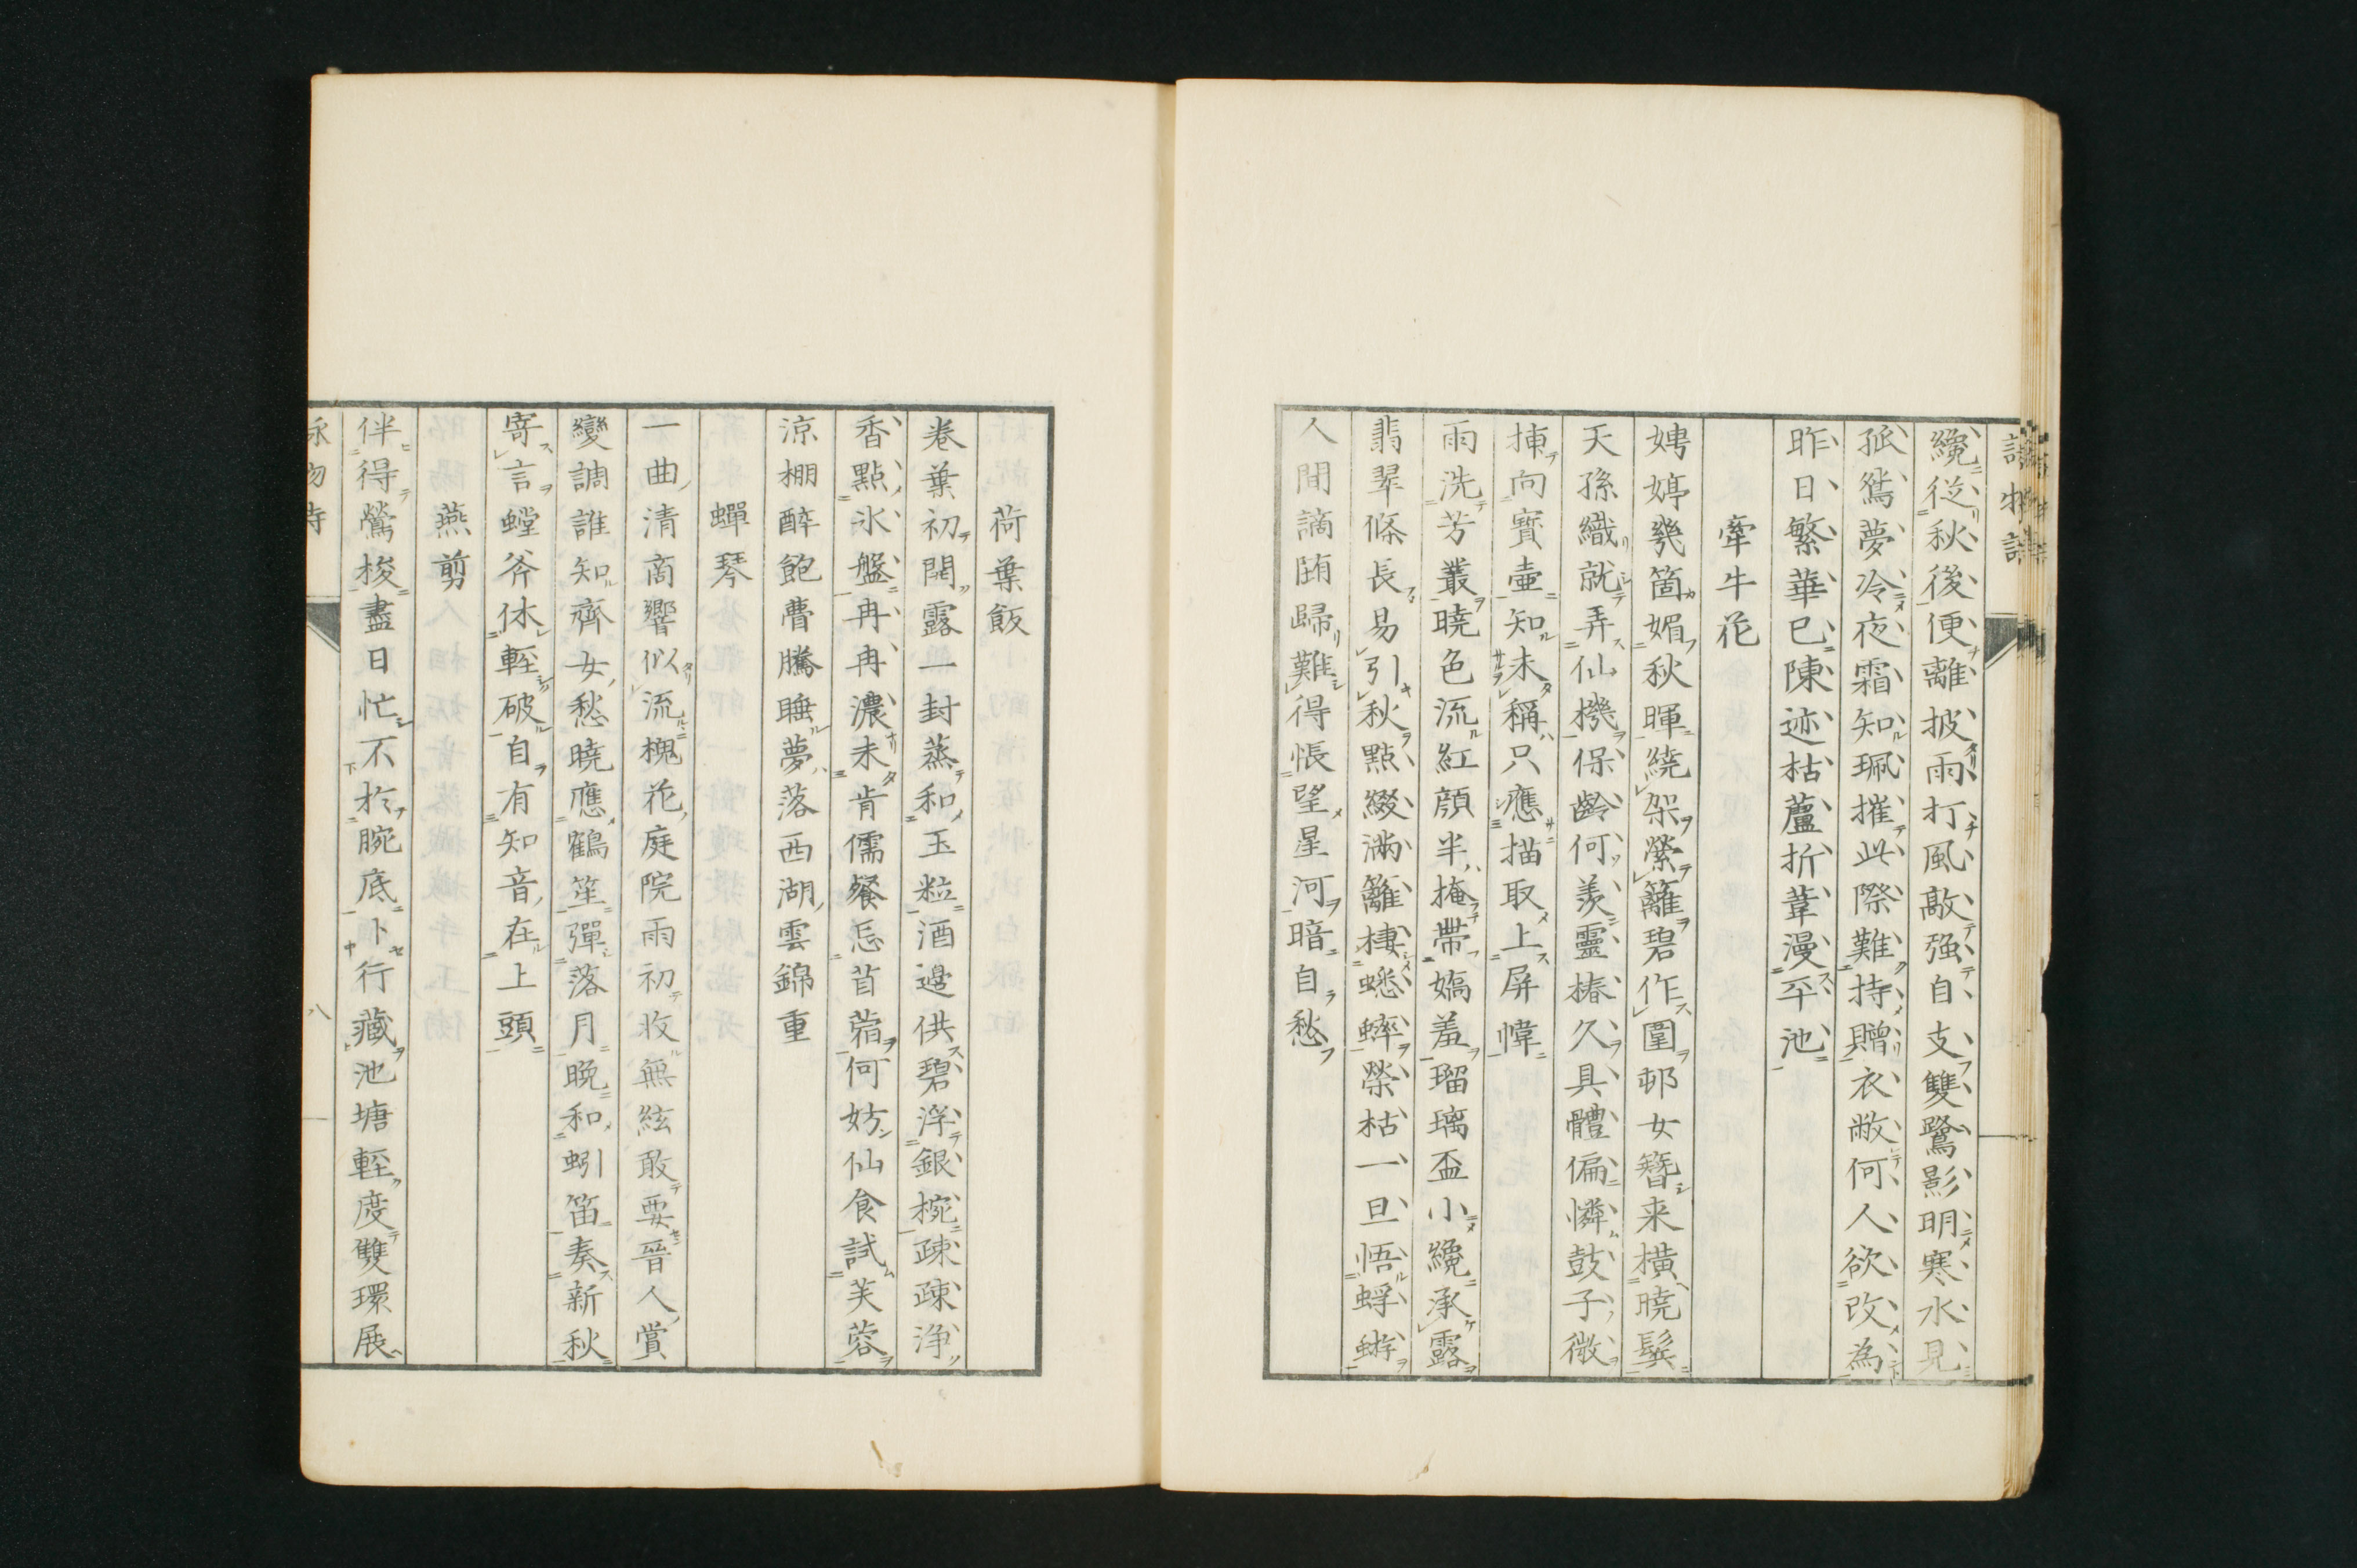 纔從秋後便離披雨打風敲强自支雙鷺影明寒水見
孤鴛夢冷夜霜知珮摧此際難持贈衣敝何人欲改為
昨日繁華已陳迹枯蘆折葦漫平池
牽牛花
娉婷幾箇媚秋暉繞架縈籬碧作圍邨女簪来横曉鬢
天孫織就弄仙機保齡何羨靈椿久具體偏憐鼓子微
揀向寳壷知未稱只應描取上屏幃
雨洗芳叢曉色流紅顔半掩帶嬌羞瑠璃盃小纔承露
翡翠條長易引秋點綴滿籬棲蟋蟀榮枯一旦悟蜉蝣
人間謫陏歸難得悵望星河暗自愁
荷葉飯
卷葉初開露一封蒸和玉粒酒邊供碧浮銀椀疎疎浄
香點氷盤冉冉濃未肯儒餐忘苜蓿何妨仙食試芙蓉
涼棚醉飽瞢騰睡夢落西湖雲錦重
蟬琴
一曲清商響似流槐花庭院雨初收無絃敢要晉人賞
變調誰知齊女愁曉應鶴笙彈落月晩和蚓笛奏新秋
寄言螳斧休輕破自有知音在上頭
燕剪
伴得鶯梭盡日忙不於腕底卜行藏池塘輕度雙環展
詠物詩
八